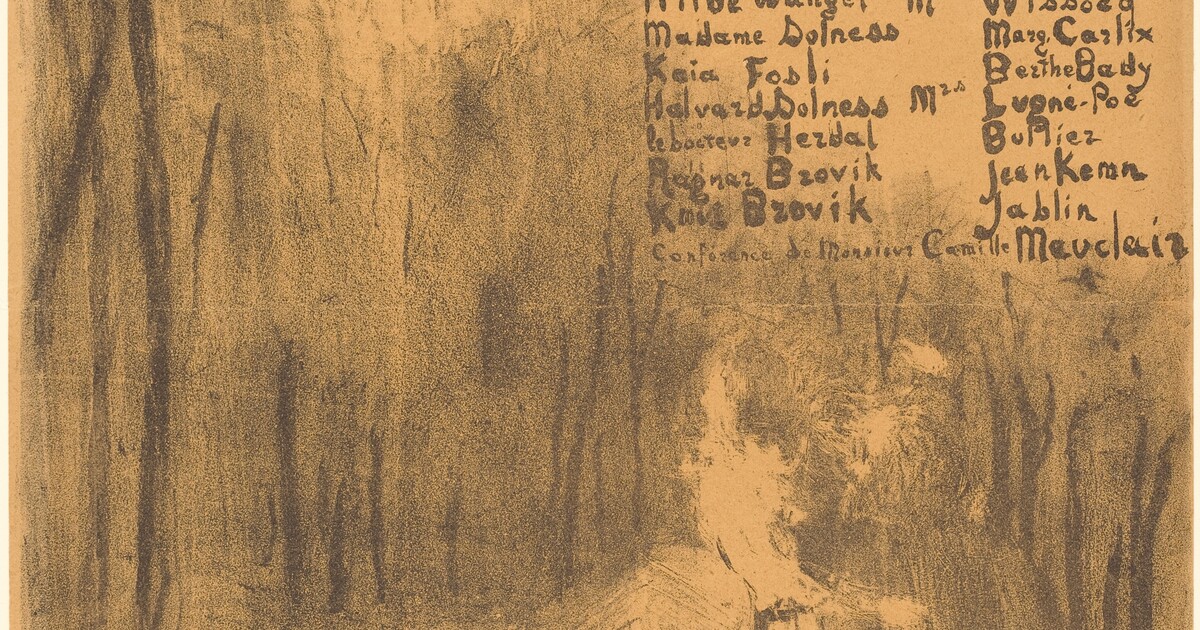 Hilde Wangel M
Madame Solness Marg. Carlix
Kaia Fosli Berthe Bady
Halvard Solness Mrs Lugné-Poë
le docteur Herdal
Ragnar Brovik Jean Kemn
Knut Brovik Jablin
Conférence de Monsieur Camille Mauclair